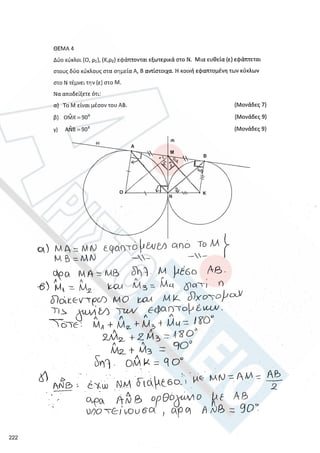 ΘΕΜΑ 4
Δύο κύκλοι (Ο, ρ₁), (Κ,ρ₂) εφάπτονται εξωτερικά στο Ν. Μια ευθεία (ε) εφάπτεται
στους δύο κύκλους στα σημεία Α, Β αντίστοιχα. Η κοινή εφαπτομένη των κύκλων
στο Ν τέμνει την (ε) στο Μ.
Να αποδείξετε ότι:
α) Το Μ είναι μέσον του ΑΒ. (Μονάδες 7)
β) ΟM̂Κ = 90° (Μονάδες 9)
γ) ΑN̂Β = 90° (Μονάδες 9)
Α Μ Β
Ο Ν Κ
α) ΜΑ = ΜΝ εφαπτόμενες από το Μ
ΜΒ = ΜΝ —〃— —〃—
άρα ΜΑ = ΜΒ δηλ. Μ μέσο ΑΒ.
β) M̂₁ = M̂₂ και M̂₃ = M̂₄ γιατί η
διάκεντρος ΜΟ και ΜΚ διχοτομούν
τις γωνίες των εφαπτομένων.
Τότε: M̂₁ + M̂₂ + M̂₃ + M̂₄ = 180°
2M̂₂ + 2M̂₃ = 180°
M̂₂ + M̂₃ = 90°
δηλ. ΟM̂Κ = 90°
γ) ΑN̂Β : έχω ΝΜ διάμεσο, με ΜΝ = ΑΜ = ΑΒ/2
άρα ΑN̂Β ορθογώνιο με ΑΒ
υποτείνουσα, άρα ΑN̂Β = 90°
222